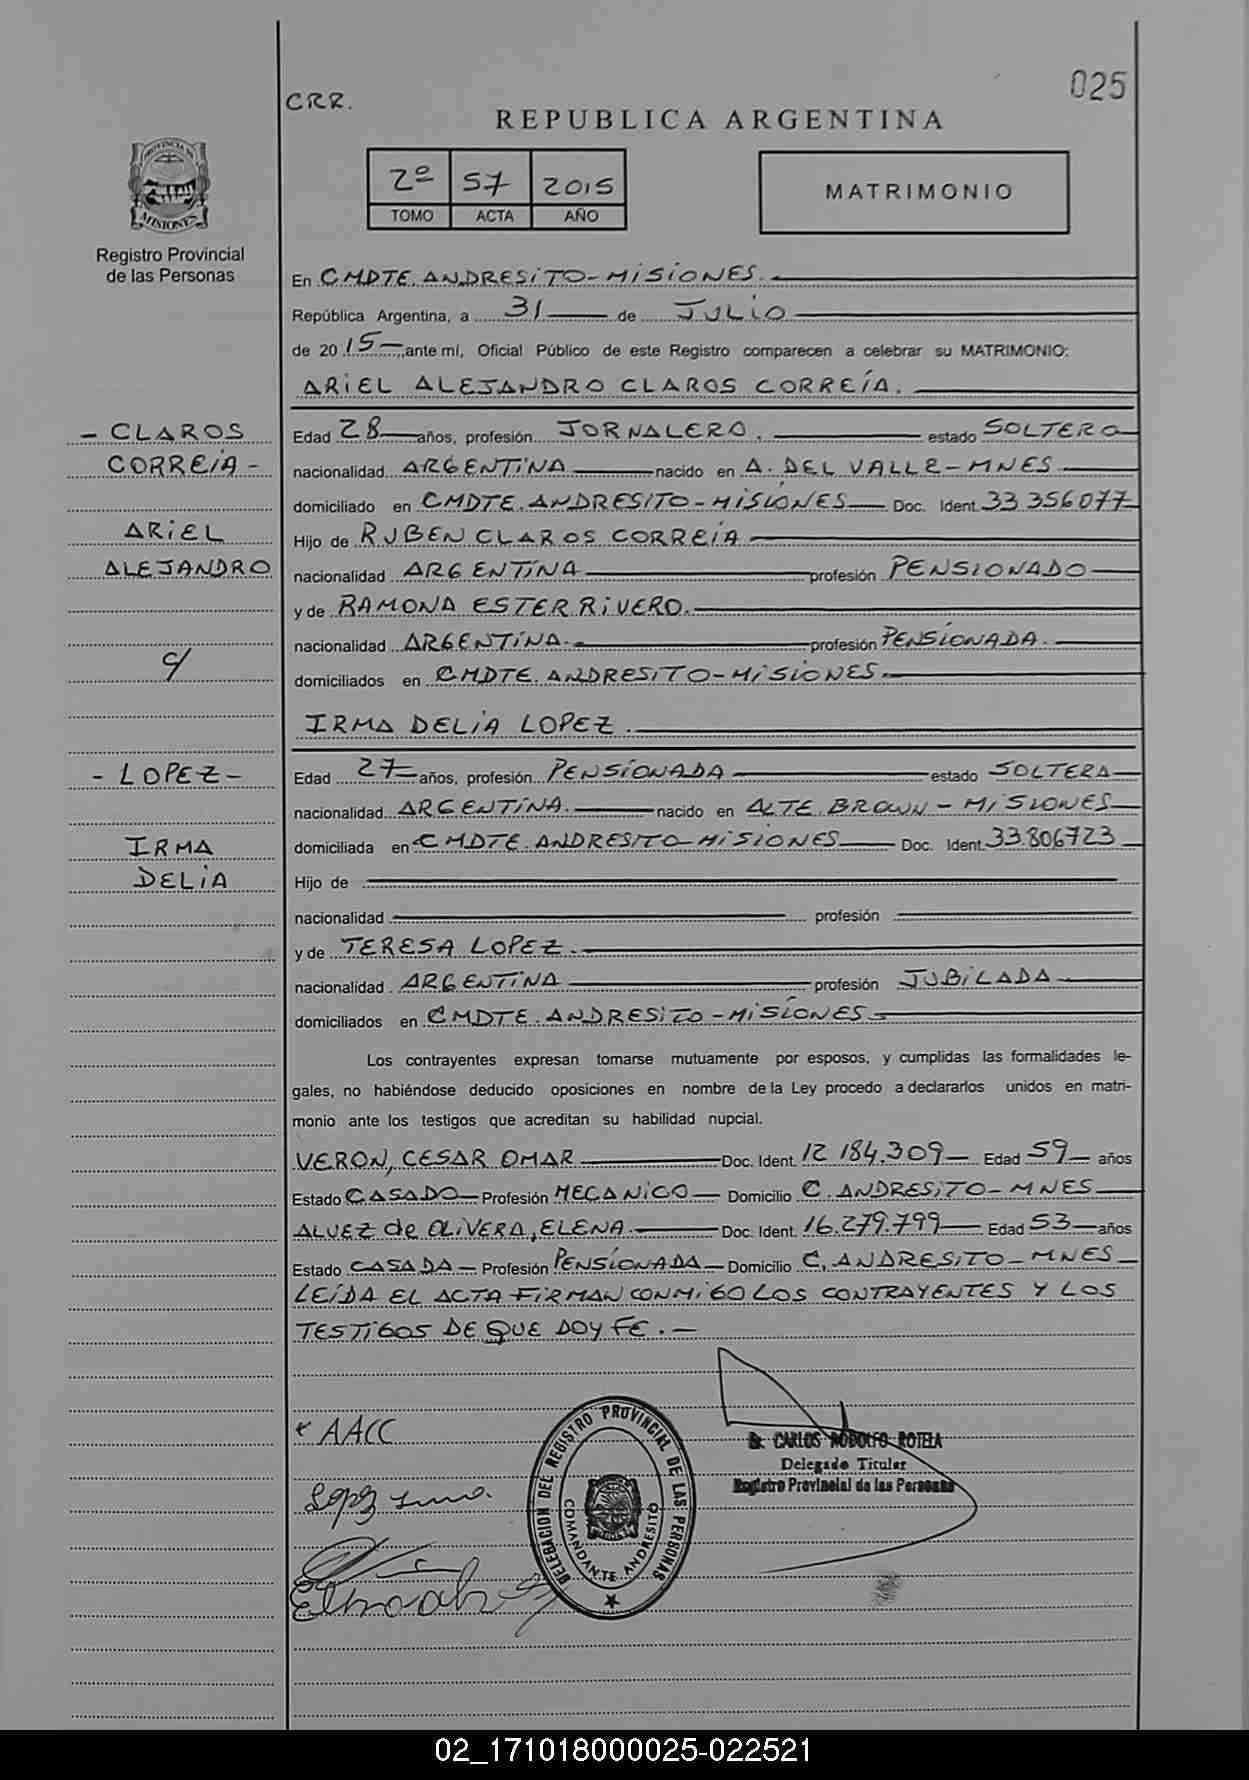 025
CRR.
REPUBLICA ARGENTINA
2º 57 2015
TOMO ACTA AÑO
MATRIMONIO
PROVINCIA DE
MISIONES
Registro Provincial
de las Personas
En CMDTE. ANDRESITO-MISIONES.
República Argentina, a 31 de JULIO
de 2015 ante mí, Oficial Público de este Registro comparecen a celebrar su MATRIMONIO:
ARIEL ALEJANDRO CLAROS CORREÍA.
- CLAROS
CORREIA -
ARIEL
ALEJANDRO
c/
- LOPEZ -
IRMA
DELIA
Edad 28 años, profesión JORNALERO. estado SOLTERO
nacionalidad ARGENTINA nacido en A. DEL VALLE-MNES
domiciliado en CMDTE. ANDRESITO-MISIONES Doc. Ident. 33 356077
Hijo de RUBEN CLAROS CORREÍA
nacionalidad ARGENTINA profesión PENSIONADO
y de RAMONA ESTER RIVERO.
nacionalidad ARGENTINA. profesión PENSIONADA.
domiciliados en CMDTE. ANDRESITO-MISIONES
IRMA DELIA LOPEZ.
Edad 27 años, profesión PENSIONADA estado SOLTERA
nacionalidad ARGENTINA. nacido en ALTE. BROWN - MISIONES
domiciliada en CMDTE. ANDRESITO-MISIONES Doc. Ident. 33.806723
Hijo de
nacionalidad profesión
y de TERESA LOPEZ.
nacionalidad ARGENTINA profesión JUBILADA
domiciliados en CMDTE. ANDRESITO-MISIONES
Los contrayentes expresan tomarse mutuamente por esposos, y cumplidas las formalidades le-
gales, no habiéndose deducido oposiciones en nombre de la Ley procedo a declararlos unidos en matri-
monio ante los testigos que acreditan su habilidad nupcial.
VERON, CESAR OMAR Doc. Ident. 12 184.309 Edad 59 años
Estado CASADO Profesión MECANICO Domicilio C. ANDRESITO-MNES
ALVEZ de OLIVERA, ELENA Doc. Ident. 16.279.799 Edad 53 años
Estado CASADA Profesión PENSIONADA Domicilio C. ANDRESITO-MNES
LEÍDA EL ACTA FIRMAN CONMIGO LOS CONTRAYENTES Y LOS
TESTIGOS DE QUE DOY FE.-
AACC
Lopez Irma.
DELEGACION DEL REGISTRO PROVINCIAL DE LAS PERSONAS
COMANDANTE ANDRESITO
Dr. CARLOS RODOLFO ROTELA
Delegado Titular
Registro Provincial de las Personas
02_171018000025-022521